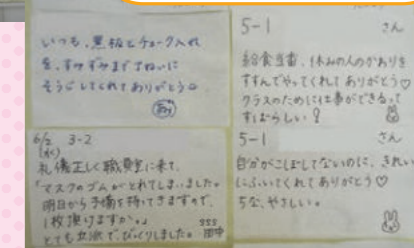 いつも、黒板とチョーク入れ
を、すみずみまでていねいに
そうじしてくれてありがとう
6/2 3-2
(水)
礼儀正しく職員室に来て、
「マスクのゴムがとれてしまいました。
明日から予備を持ってきますので、
1枚頂けますか。」
とても立派で、びっくりしました。
田中
5-1 さん
給食当番、休みの人のかわりを
すすんでやってくれてありがとう♡
クラスのために仕事ができるって
すばらしい!
5-1 さん
自分がこぼしてないのに、きれい
にふいてくれてありがとう♡
やさしい。